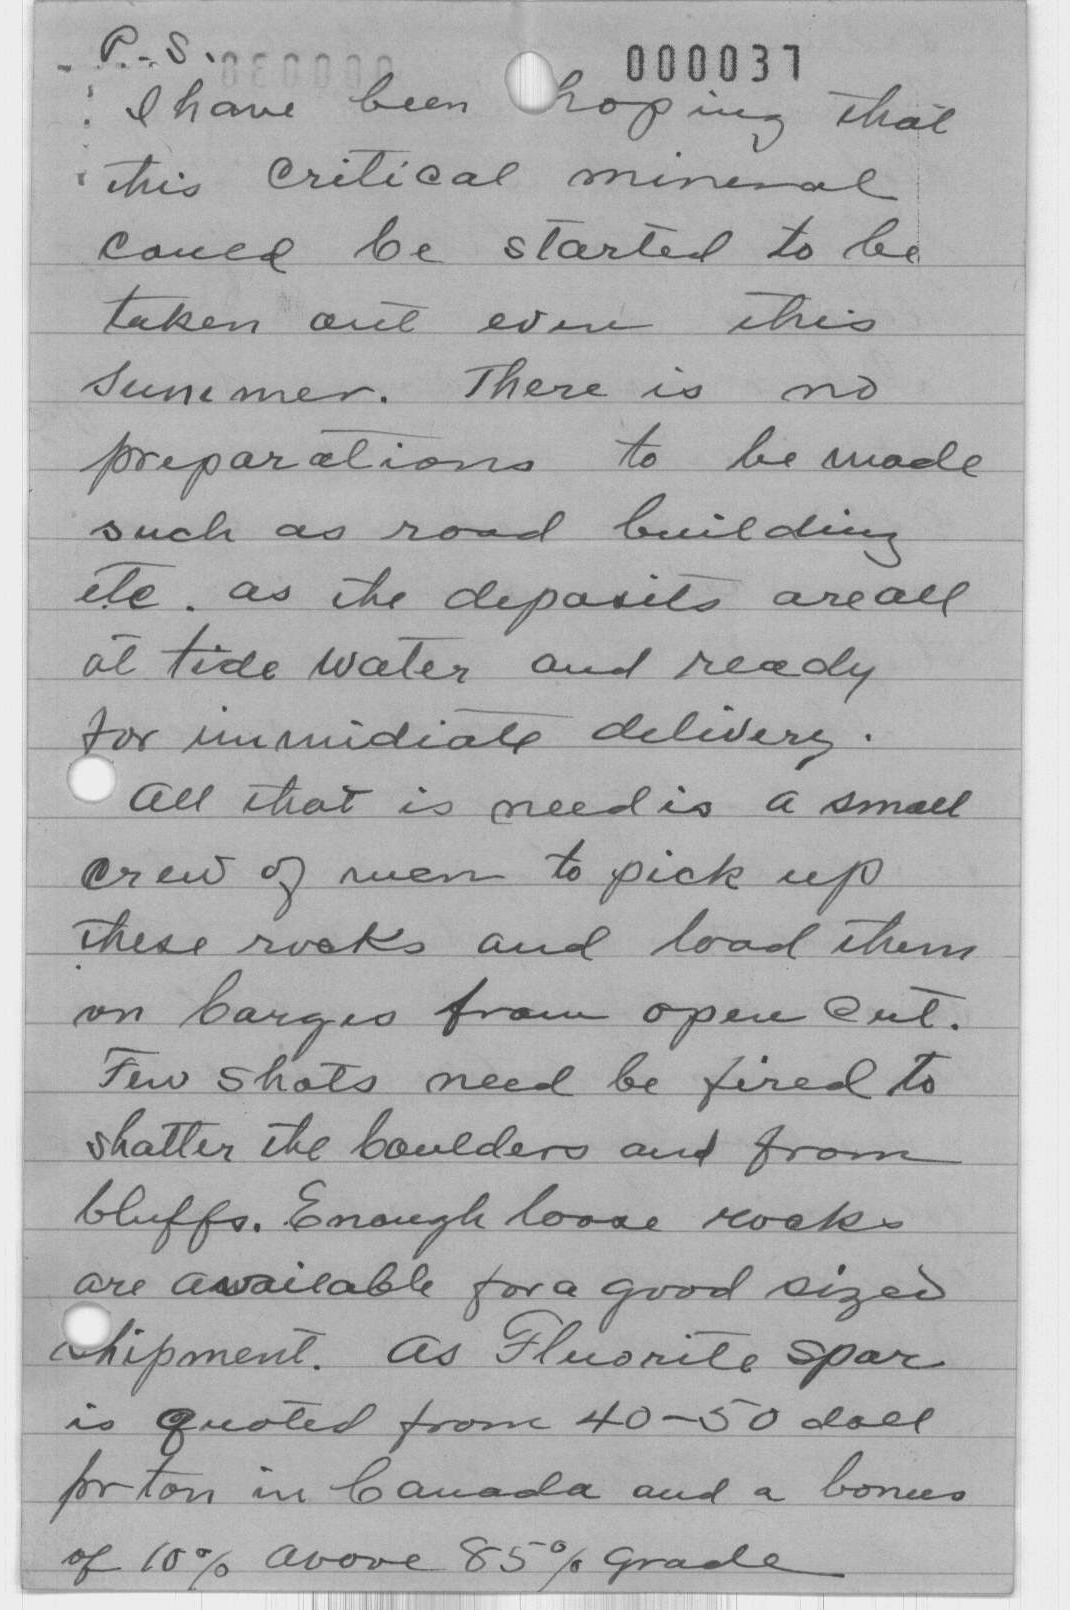 P.-S.
000037
I have been hoping that
this critical mineral
could be started to be
taken out even this
summer. There is no
preparations to be made
such as road building
etc. as the deposits are all
at tide water and ready
for immidiate delivery.
All that is need is a small
crew of men to pick up
these rocks and load them
on barges from open cut.
Few shots need be fired to
shatter the boulders and from
bluffs. Enough loose rocks
are available for a good sized
shipment. As Fluorite spar
is quoted from 40-50 doll
pr ton in Canada and a bonus
of 10% above 85% grade